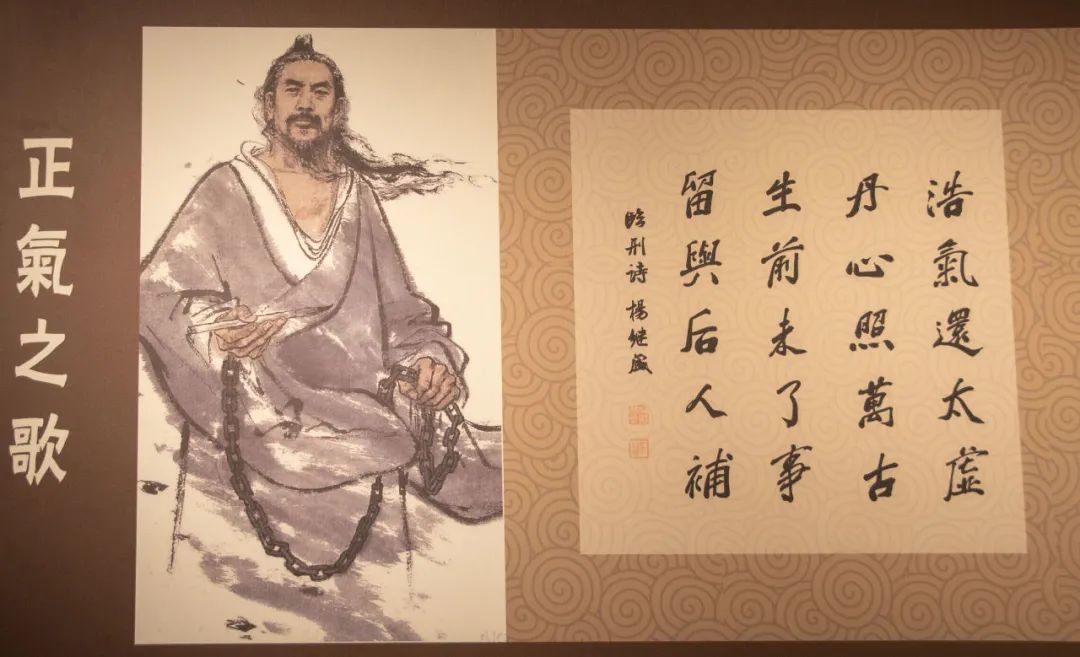 正氣之歌
浩氣還太虛
丹心照萬古
生前未了事
留與后人補
臨刑诗 楊继盛